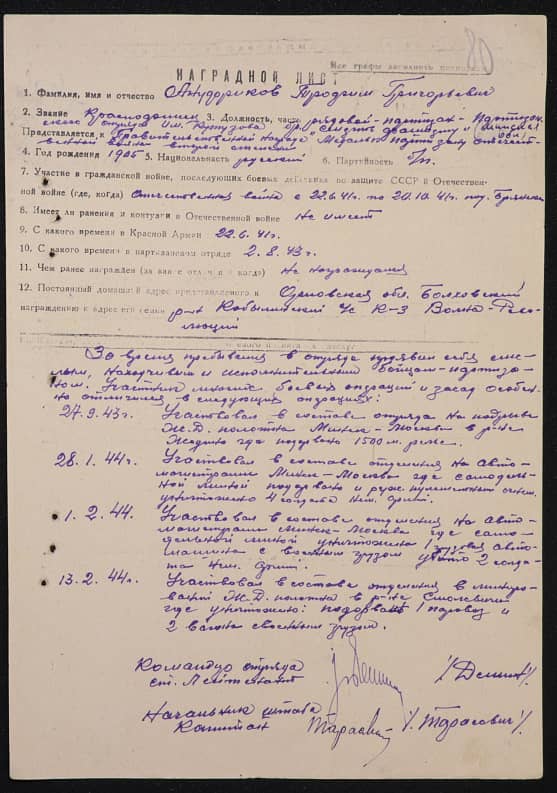 80
Все графы заполнять полностью
НАГРАДНОЙ ЛИСТ
1. Фамилия, имя и отчество Андорриков Трофим Григорьевич
2. Звание Краснодонск 3. Должность, часть рядовой-партизан- Партизан.
ского отряда им. Кутузова бр. "Смерть фашизму" Минской обл.
Представляется к Правительственной награде Медаль партизану отечест-
венной войны второй степени
4. Год рождения 1905 5. Национальность русский 6. Партийность б/п.
7. Участие в гражданской войне, последующих боевых действиях по защите СССР и Отечествен-
ной войне (где, когда) отечественная война с 22.6.41г. по 20.10.41г. под. Брянском
8. Имеет ли ранения и контузии в Отечественной войне не имеет
9. С какого времени в Красной Армии 22.6.41г.
10. С какого времени в партизанском отряде 2.8.43г.
11. Чем ранее награжден (за какие отличия и когда) не награждался
12. Постоянный домашний адрес представляемого к Орловская обл. Болховский
награждению и адрес его семьи р-н Кобылинский с/с К-з Волна-Рево-
люций
За время пребывания в отряде проявил себя сме-
лым, находчивым и исполнительным бойцом-партиза-
ном. Участник многих боевых операций и засад особен-
но отличился в следующих операциях:
27.9.43г. Участвовал в составе отряда на подрыве
Ж.Д. полотна Минск-Москва в р-не
Жодино где подорвано 1500 м. рельс.
28.1.44г. Участвовал в составе отделения на авто-
магистрали Минск-Москва где самодель-
ной миной подорвано и ружейно-пулеметным огнем
уничтожено 4 солдата нем. армии.
1.2.44. Участвовал в составе отделения на авто-
магистрали Минск-Москва где само-
дельной миной уничтожена 1 грузовая авто-
машина с военным грузом убито 2 солда-
та нем. армии.
13.2.44г. Участвовал в составе отделения в миниро-
вании Ж.Д. полотна в р-не Смолевичи
где уничтожено: подорван 1 паровоз и
2 вагона с военным грузом.
Командир отряда
ст. Лейтенант /Демин/
Начальник штаба
Капитан Тарасевич /Тарасевич/.